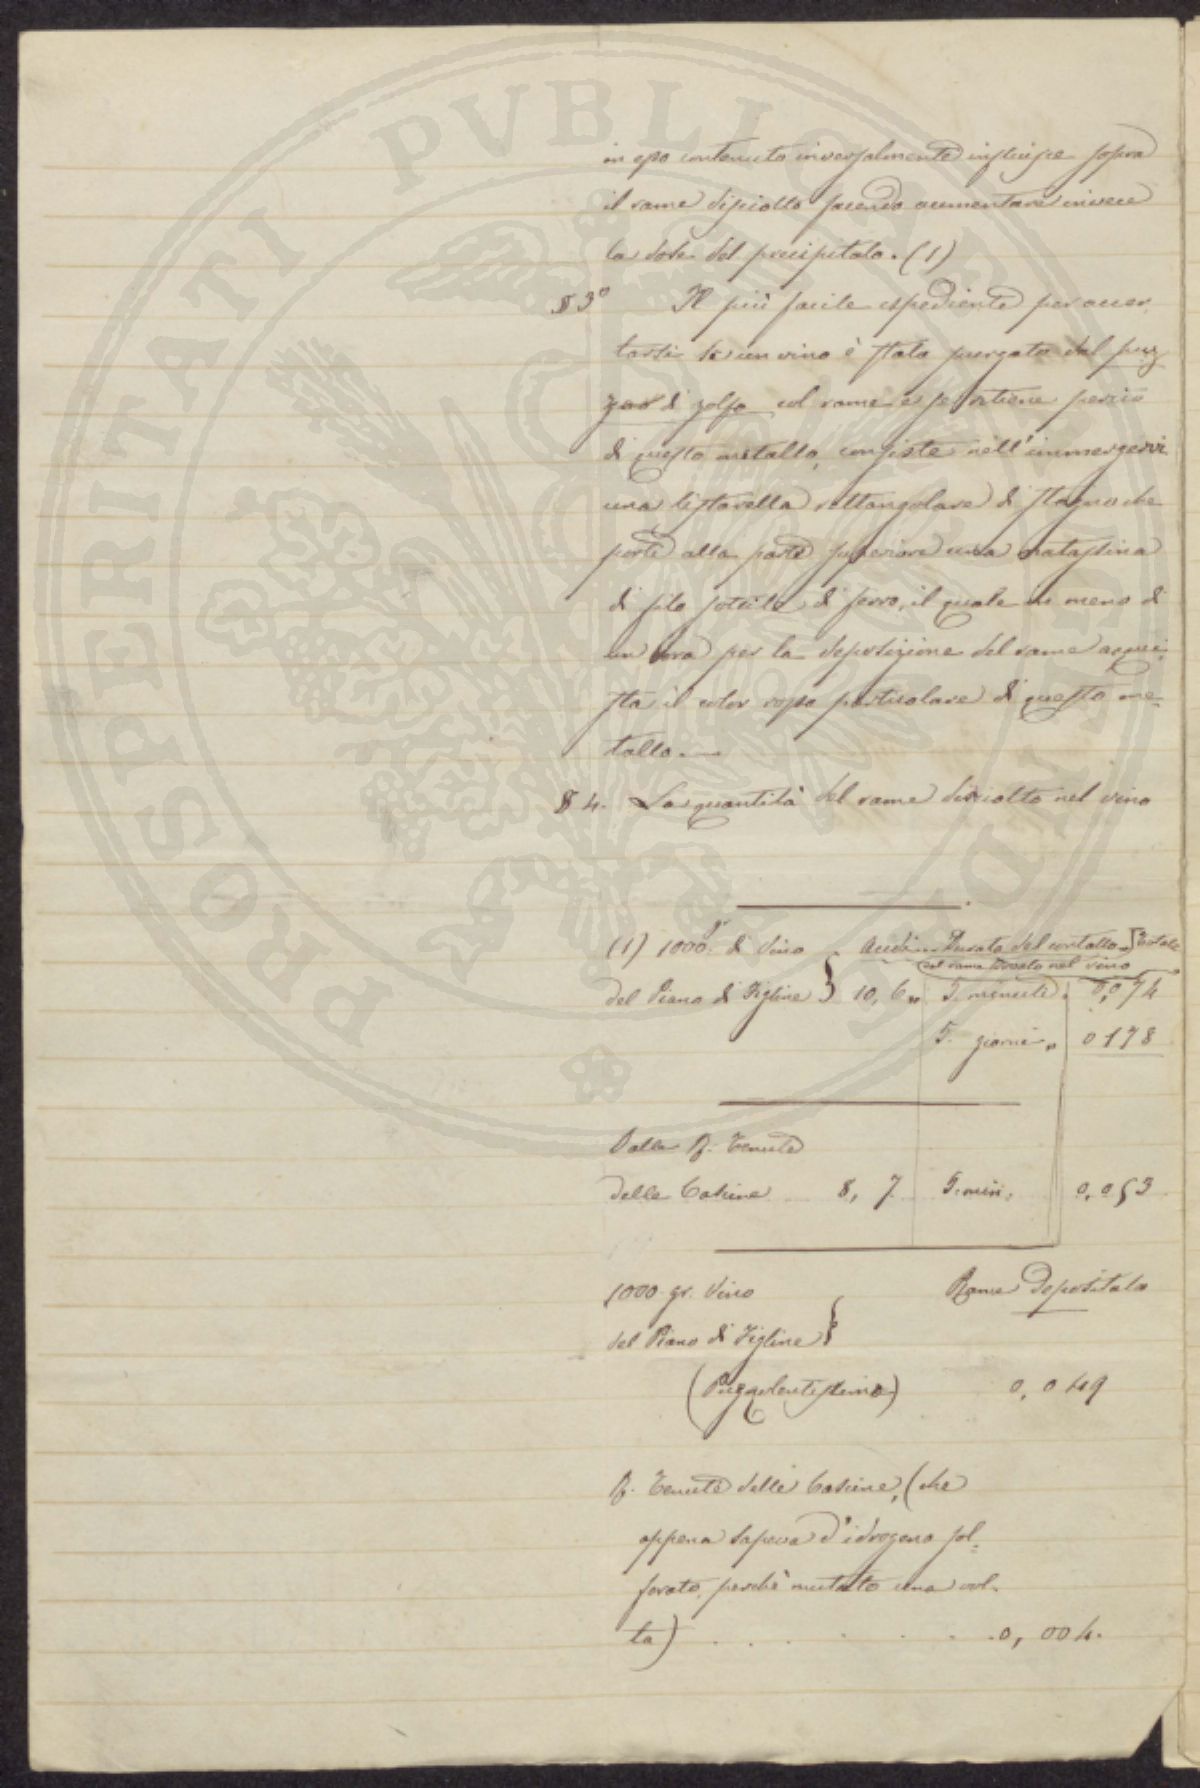 PROSPERITATI PVBLICAE
in esso contenuto inversalmente influisce sopra
il rame disciolto facendo aumentare invece
la dose del precipitato. (1)
§ 3° Il più facile espediente per accer
tarsi se un vino è stato purgato dal puz
zo di zolfo col rame e se ritiene perciò
di questo metallo, consiste nell'immergervi
una listarella rettangolare di stagno che
porti alla parte superiore una matassina
di filo sottile di ferro, il quale in meno di
un'ora per la deposizione del rame acqui-
sta il color rosso particolare di questo me-
tallo.
§ 4. La quantità del rame disciolto nel vino
(1) 1000 gr. di Vino Acidi Durata del contatto Totale
col rame trovato nel vino
del Piano di Figline } 10, 6 5. minuti. 0,074
5. giorni 0178
Dalla R. Tenuta
delle Cascine 8, 7 5. min. 0,053
1000 gr. Vino Rame depositato
del Piano di Figline }
(Puzzolentissimo) 0,049
R. Tenuta delle Cascine, (che
appena sapeva d'idrogeno sol-
forato, perchè mutato una vol-
ta) . . . . . . 0,004.